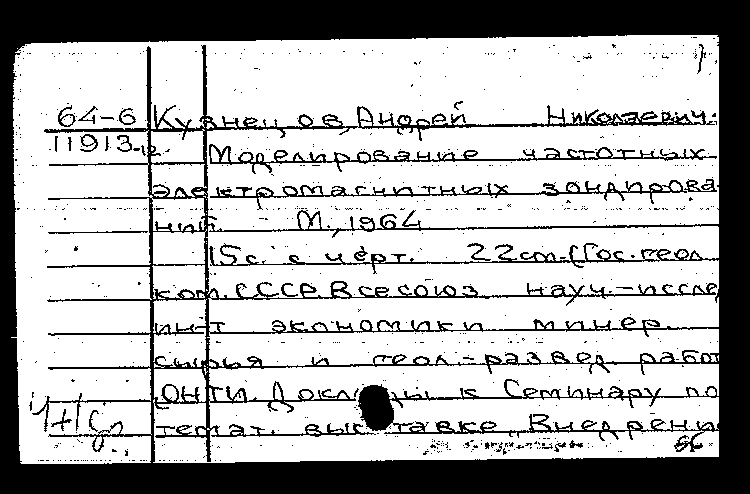 64-6 Кузнецов, Андрей Николаевич.
11913-12. Моделирование частотных
электромагнитных зондирова-
ний. М., 1964
15с. с черт. 22см. (Гос. геол.
ком. СССР. Всесоюз. науч.-иссле
ин-т экономики минер.
сырья и геол.-развед. работ
ОНТИ. Доклады к Семинару по
темат. выставке „Внедрени